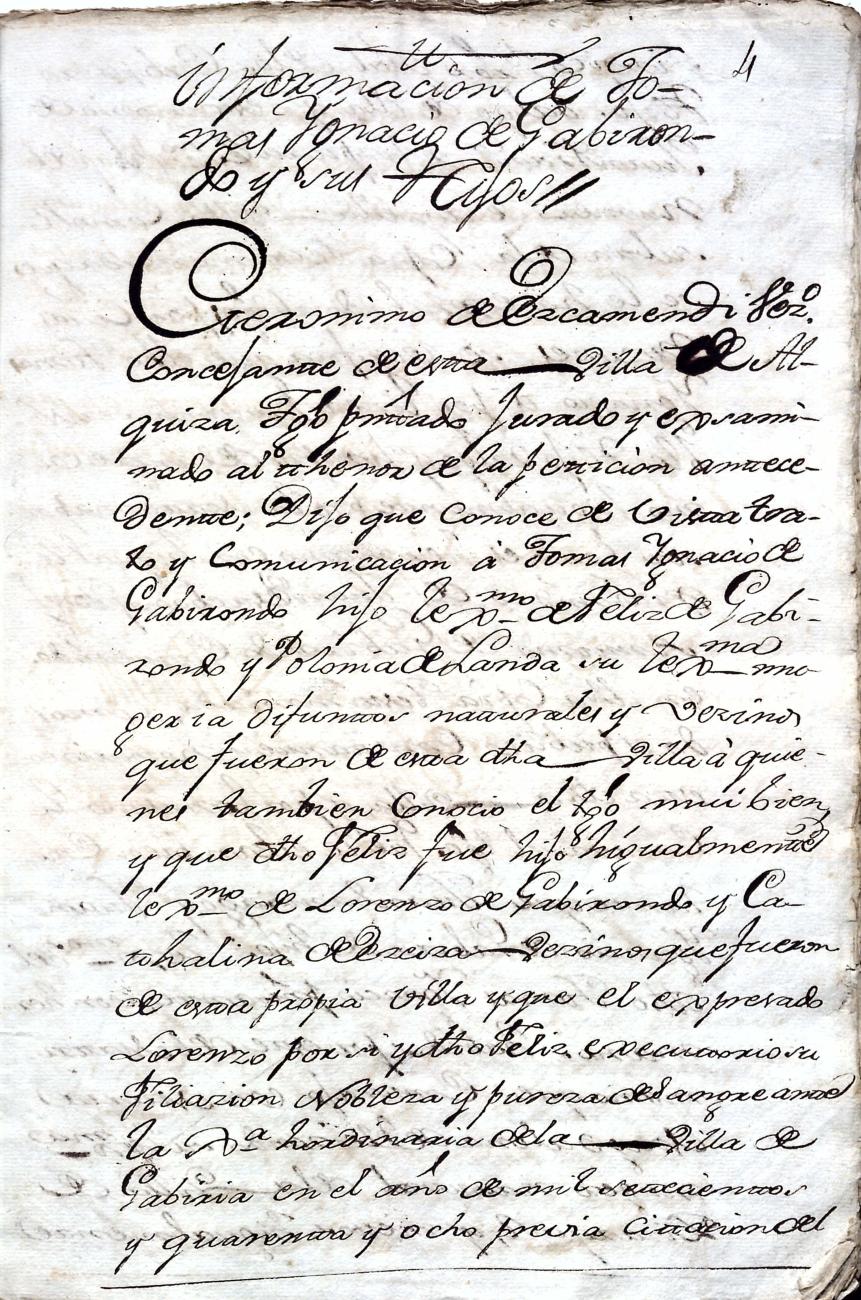 4
informacion de To-
mas Ygnacio de Gabiron-
do y sus Hijos//
Gieronimo de Yzcamendi Vez.º
Concejante de esta Villa de Al-
quiza, Tgô pnttado Jurado y exsami-
nado al tthenor de la petticion anttece-
dentte; Dijo que conoce de Vistta tra-
to y Comunicacion à Tomas Ygnacio de
Gabirondo hijo lexmo de Feliz de Gabi-
rondo y Polonia de Landa su lexma mu-
geria difunttos natturales y Vezinos
que fueron de estta dha Villa à quie-
nes tambien Conocio el tgô mui bien,
y que dho Feliz fue hijo higualmentte
lexmo de Lorenzo de Gabirondo y Ca-
thalina de Vezinos que fueron
de estta propia Villa y que el expresado
Lorenzo por si y dho Feliz, executtorio su
Filiazion Nobleza y pureza de Sangre antte
la Xª hordinaria de la Villa de
Gabiria en el año de mil settecienttos
y quarentta y ocho previa cittacion del